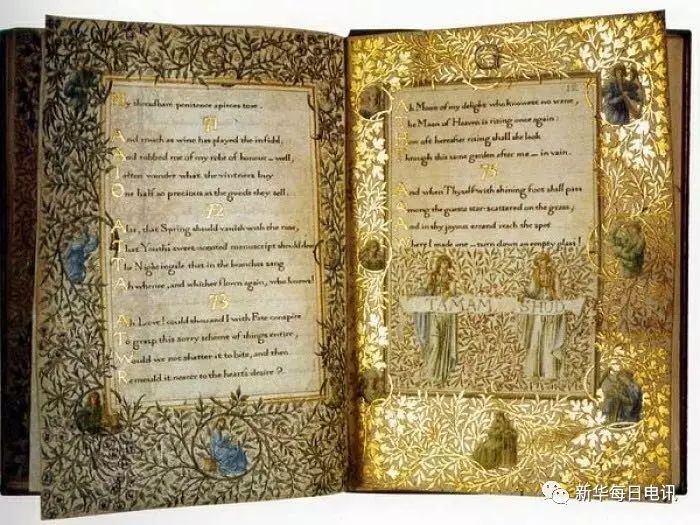 My threadbare penitence apieces tore.
71
And much as wine has played the infidel,
And robbed me of my robe of honour — well,
I often wonder what the vintners buy
One half so precious as the goods they sell.
72
Alas, that Spring should vanish with the rose,
That Youth's sweet-scented manuscript should close
The Nightingale that in the branches sang
Ah whence, and whither flown again, who knows!
73
Ah Love! could thou and I with Fate conspire
To grasp this sorry scheme of things entire,
Would we not shatter it to bits, and then
Remould it nearer to the heart's desire?
Ah Moon of my delight who knowest no wane,
The Moon of Heaven is rising once again:
How oft hereafter rising shall she look
Through this same garden after me — in vain.
75
And when Thyself with shining foot shall pass
Among the guests star-scattered on the grass,
And in thy joyous errand reach the spot
Where I made one — turn down an empty glass!
TAMAM SHUD
新华每日电讯